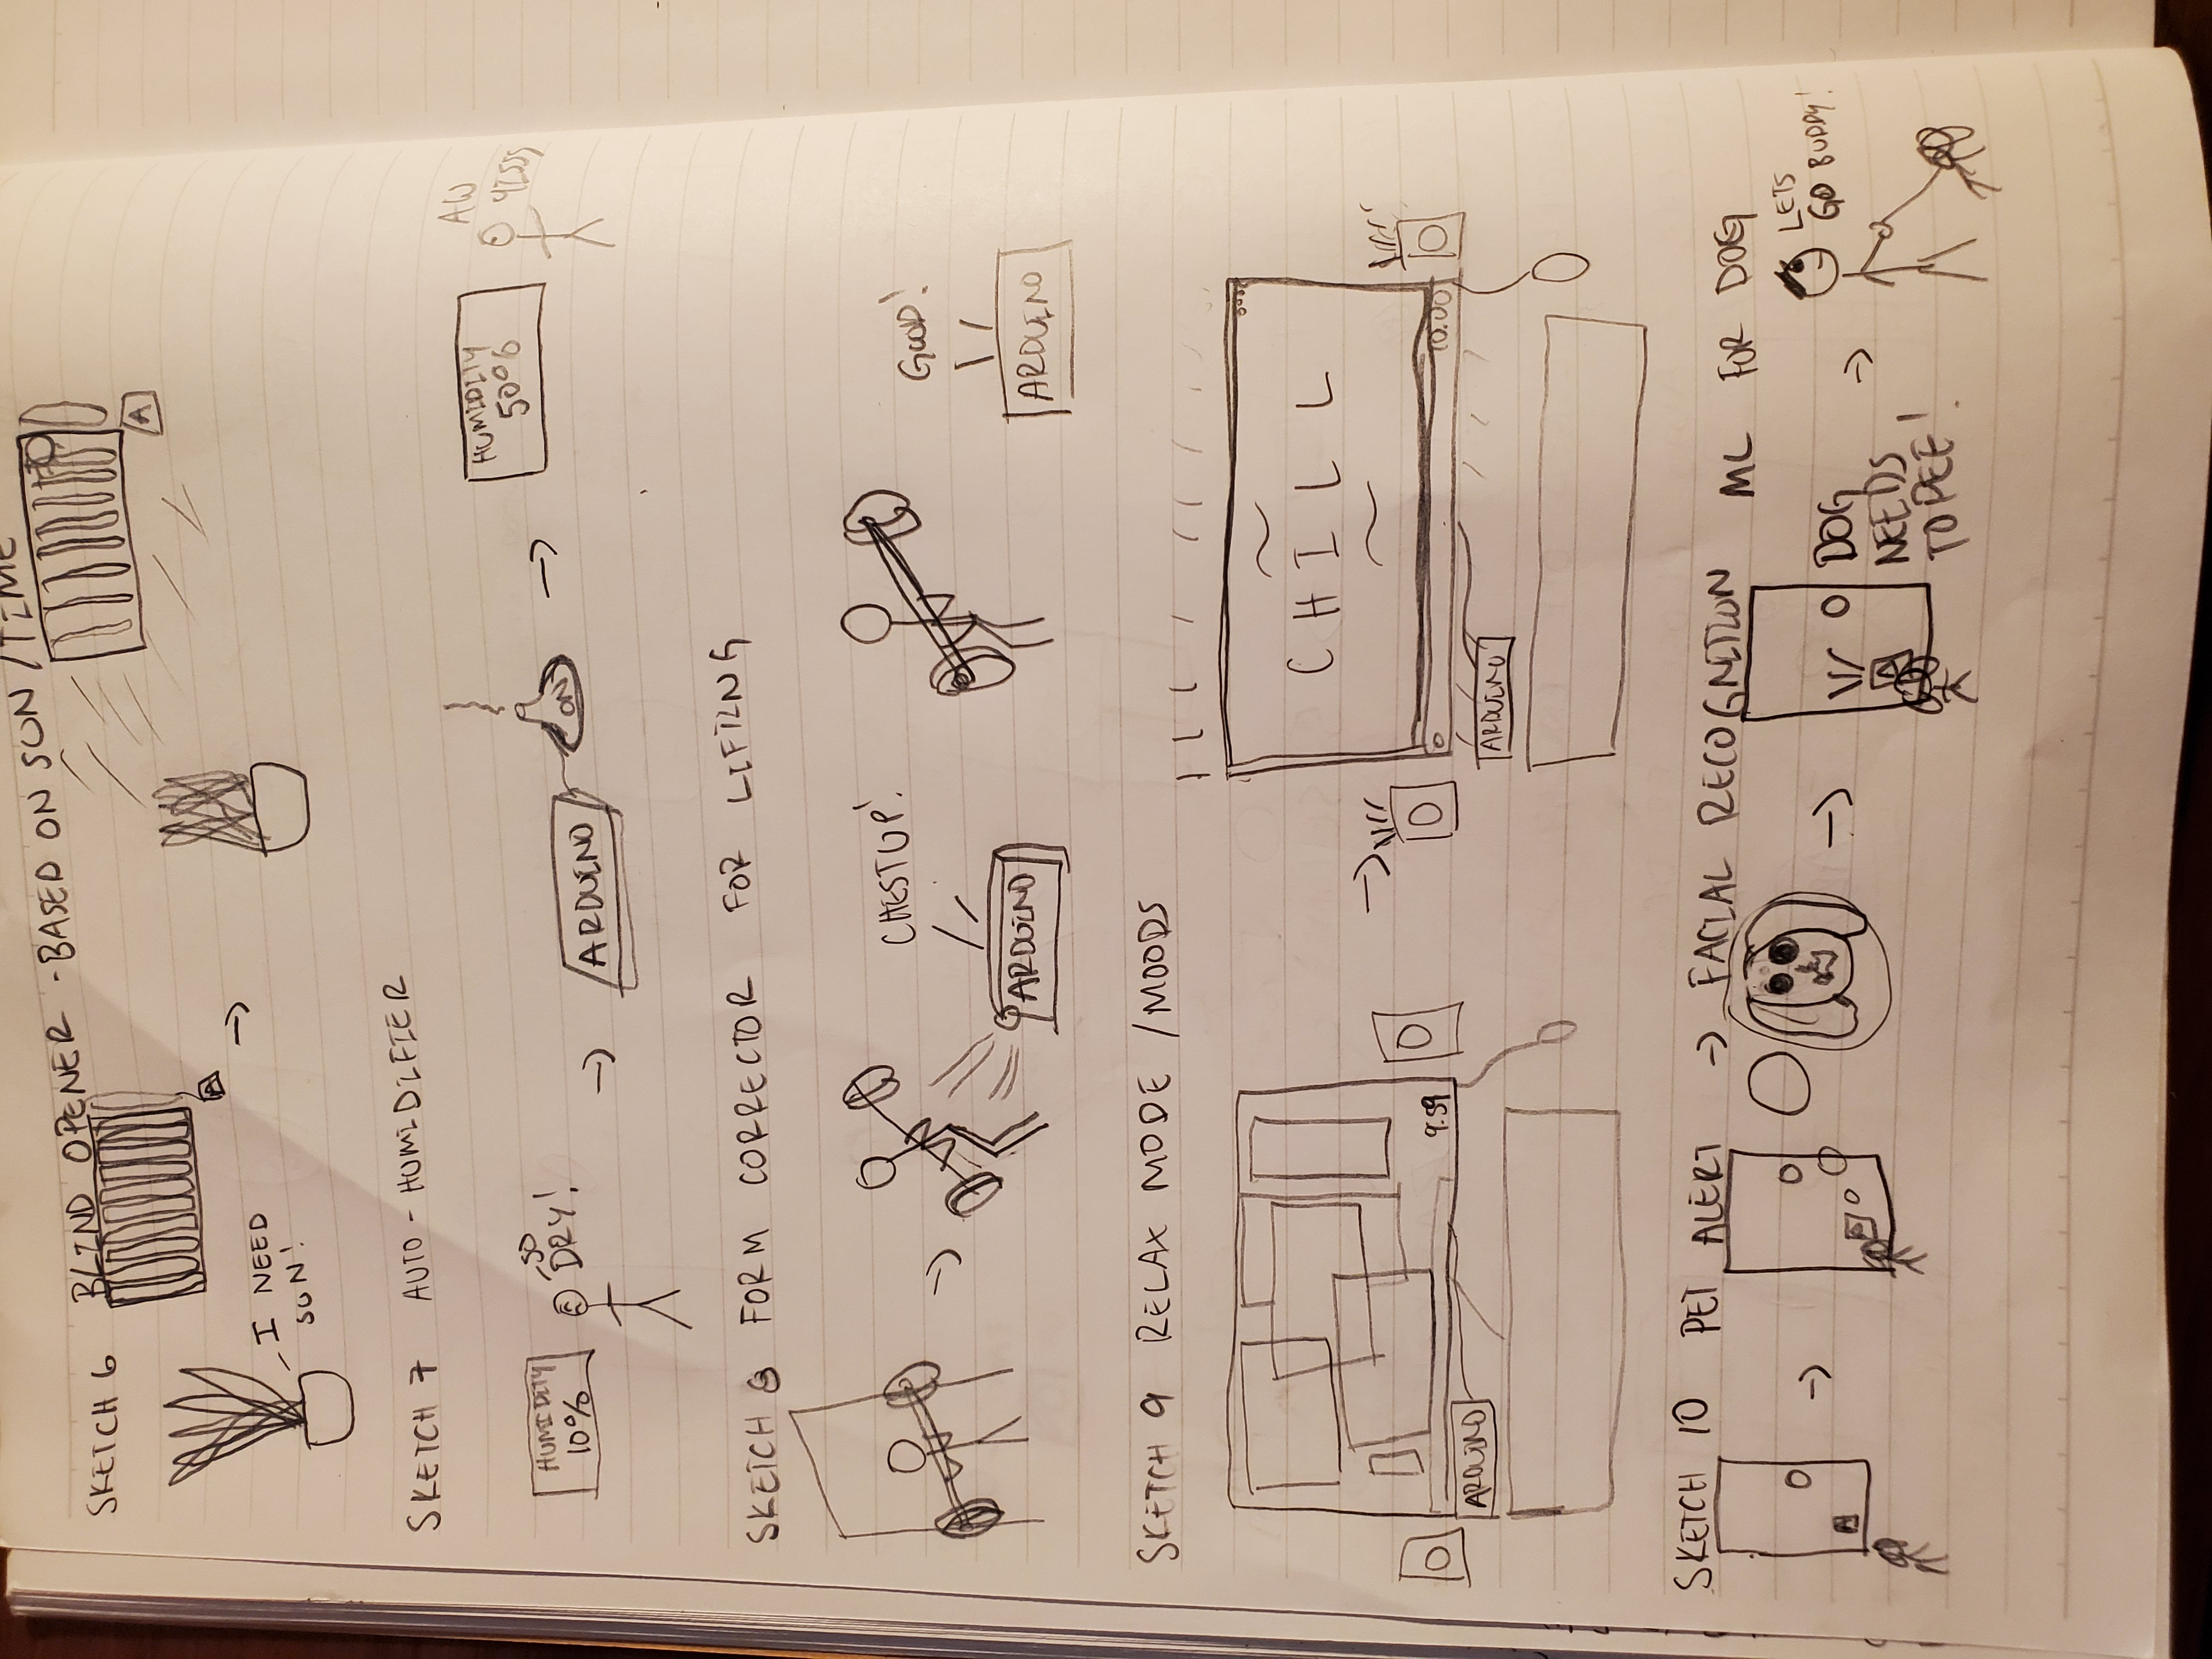 SKETCH 6 BLIND OPENER - BASED ON SUN / TIME
A
A
I NEED
SUN!
SKETCH 7 AUTO - HUMIDIFIER
HUMIDITY
10%
SO
DRY!
ARDUINO
ON
HUMIDITY
50%
AW
YISSS
SKETCH 8 FORM CORRECTOR FOR LIFTING
CHEST UP!
ARDUINO
GOOD!
ARDUINO
SKETCH 9 RELAX MODE / MOODS
9:59
ARDUINO
~
CHILL
~
10:00
ARDUINO
SKETCH 10 PET ALERT → FACIAL RECOGNITION ML FOR DOG
A
A
DOG
NEEDS
TO PEE!
LETS
GO BUDDY!